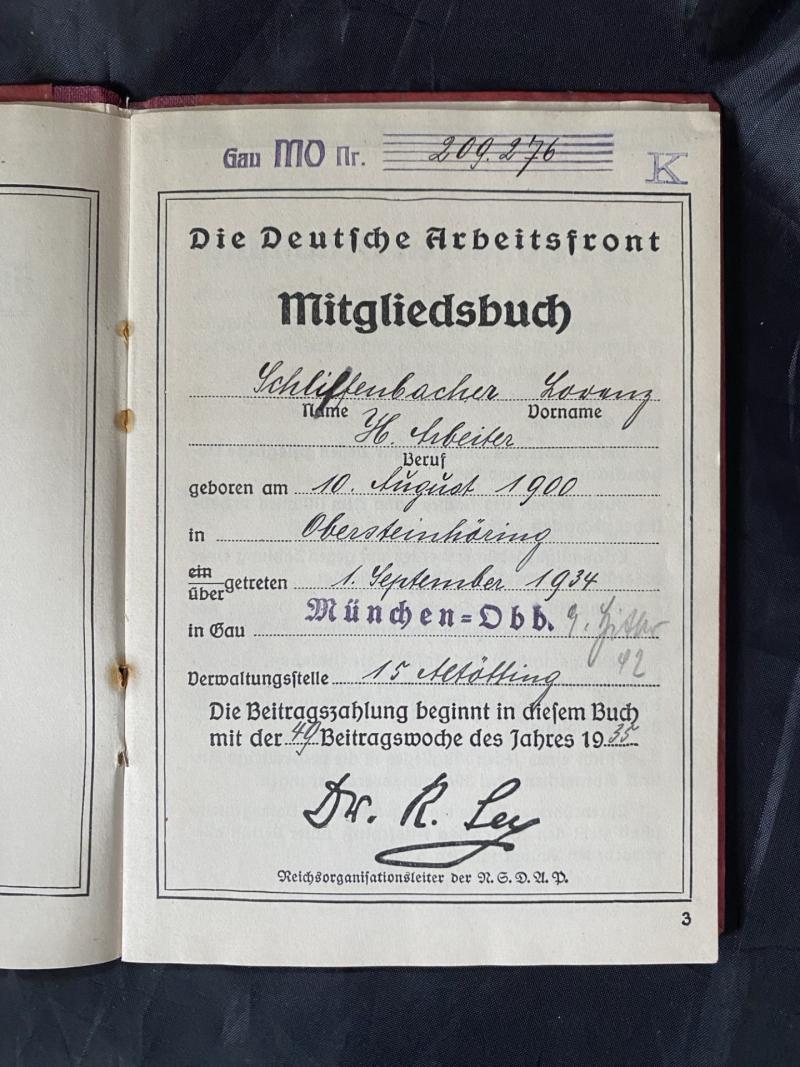 Gau MO Nr. 209.276
K
Die Deutsche Arbeitsfront
Mitgliedsbuch
Schliffenbacher Lorenz
Name Vorname
H. Arbeiter
Beruf
geboren am 10. August 1900
in Obersteinhöring
ein
übergetreten 1. September 1934
in Gau München=Obb. 9.
42
Verwaltungsstelle 15 Altötting
Die Beitragszahlung beginnt in diesem Buch
mit der 49 Beitragswoche des Jahres 1935
Dr. R. Ley
Reichsorganisationsleiter der N.S.D.A.P.
3